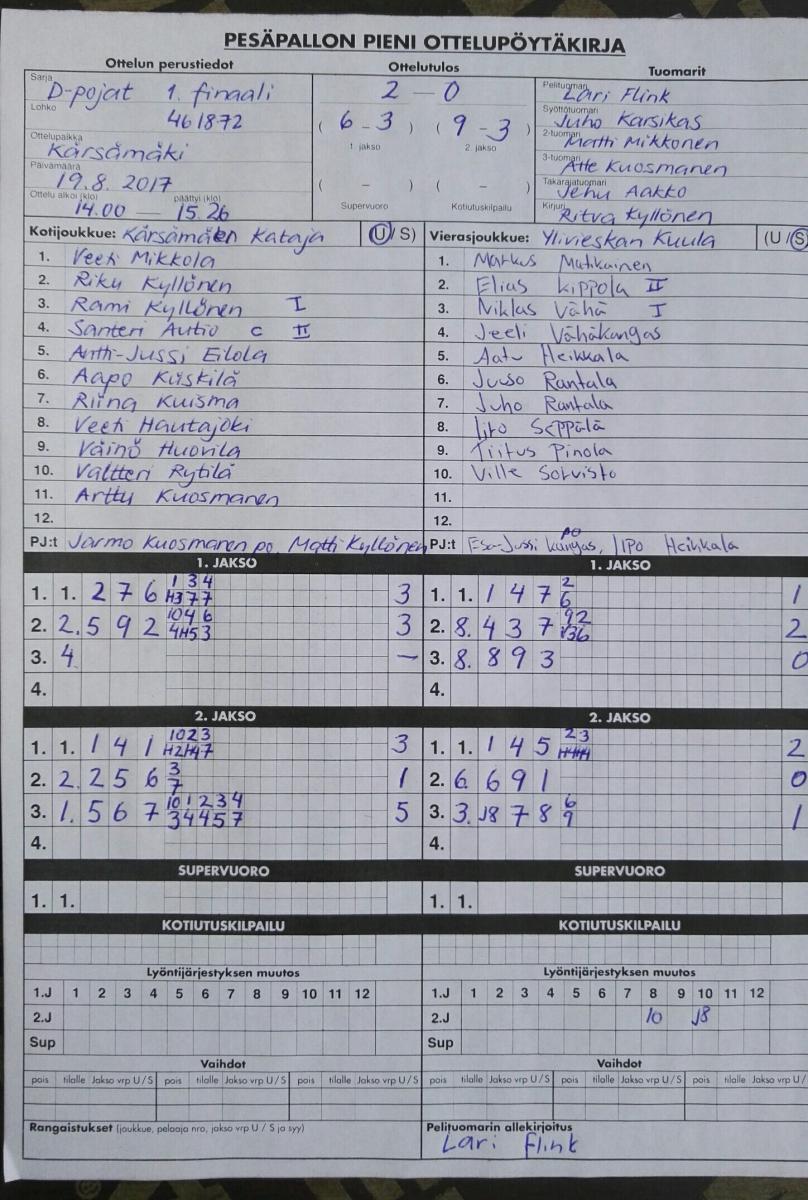 PESÄPALLON PIENI OTTELUPÖYTÄKIRJA
Ottelun perustiedot
Ottelutulos
Tuomarit
Sarja
D-pojat 1. finaali
Lohko
461872
Ottelupaikka
Kärsämäki
Päivämäärä
19.8. 2017
Ottelu alkoi (klo) päättyi (klo)
14.00 — 15.26
2 — 0
( 6 - 3 ) ( 9 - 3 )
1. jakso 2. jakso
( - ) ( - )
Supervuoro Kotiutuskilpailu
Pelituomari
Lari Flink
Syöttötuomari
Juho Karsikas
2-tuomari
Matti Mikkonen
3-tuomari
Atte Kuosmanen
Takarajatuomari
Jehu Aakko
Kirjuri
Ritva Kyllönen
Kotijoukkue: Kärsämäen Kataja (U / S)
1. Veeti Mikkola
2. Riku Kyllönen
3. Rami Kyllönen I
4. Santeri Autio c II
5. Antti-Jussi Eilola
6. Aapo Kiiskilä
7. Riina Kuisma
8. Veeti Hautajoki
9. Väinö Huovila
10. Valtteri Rytilä
11. Arttu Kuosmanen
12.
PJ:t Jarmo Kuosmanen po, Matti Kyllönen
Vierasjoukkue: Ylivieskan Kuula (U / S)
1. Markus Matikainen
2. Elias Kippola II
3. Niklas Vähä I
4. Jeeli Vähäkangas
5. Aatu Heikkala
6. Juuso Rantala
7. Juho Rantala
8. Iiro Seppälä
9. Tiitus Pinola
10. Ville Sorvisto
11.
12.
PJ:t Esa-Jussi Kangas, po IPO Heikkala
1. JAKSO
1. 1. 2 7 6 1 3 4 3
H3 7 7
2. 2. 5 9 2 10 4 6 3
4 H5 3
3. 4 –
4.
1. JAKSO
1. 1. 1 4 7 2 1
6
2. 8. 4 3 7 9 2 2
3 6
3. 8. 8 9 3 0
4.
2. JAKSO
1. 1. 1 4 1 10 2 3 3
H2 H4 7
2. 2. 2 5 6 3 1
7
3. 1. 5 6 7 10 1 2 3 4 5
3 4 4 5 7
4.
2. JAKSO
1. 1. 1 4 5 2 3 2
H4 H4
2. 6. 6 9 1 0
3. 3. J8 7 8 6 1
9
4.
SUPERVUORO
1. 1.
SUPERVUORO
1. 1.
KOTIUTUSKILPAILU
KOTIUTUSKILPAILU
Lyöntijärjestyksen muutos
1.J 1 2 3 4 5 6 7 8 9 10 11 12
2.J
Sup
Lyöntijärjestyksen muutos
1.J 1 2 3 4 5 6 7 8 9 10 11 12
2.J 10 J8
Sup
Vaihdot
pois tilalle Jakso vrp U / S pois tilalle Jakso vrp U / S pois tilalle Jakso vrp U / S
Vaihdot
pois tilalle Jakso vrp U / S pois tilalle Jakso vrp U / S pois tilalle Jakso vrp U /
Rangaistukset (joukkue, pelaaja nro, jakso vrp U / S ja syy)
Pelituomarin allekirjoitus
Lari Flink